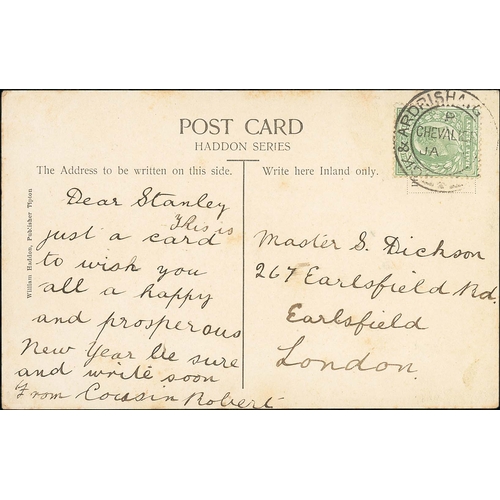 POST CARD
HADDON SERIES
The Address to be written on this side.
Write here Inland only.
William Haddon, Publisher Tipton
Dear Stanley
This is
just a card
to wish you
all a happy
and prosperous
New Year be sure
and write soon
From Cousin Robert
Master S. Dickson
267 Earlsfield Rd.
Earlsfield
London.
& ARDRISHAIG
R
CHEVALIE
JA